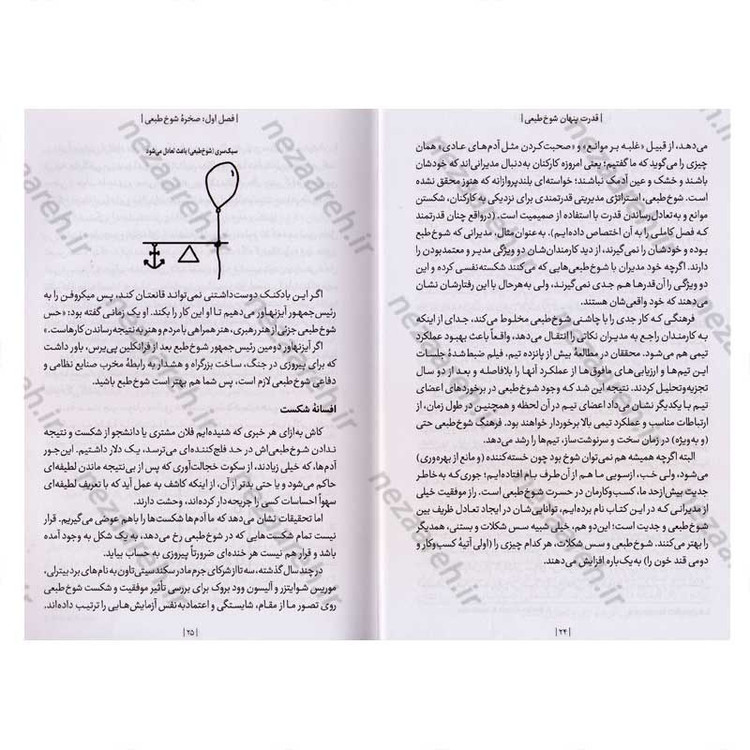 | قدرت پنهان شوخ‌طبعی |
می‌دهد، از قبیل «غلبه بر موانع» و «صحبت کردن مثل آدم‌های عادی» همان
چیزی را می‌گوید که ما گفتیم؛ یعنی امروزه کارکنان به‌دنبال مدیرانی‌اند که خودشان
باشند و خشک و عین آدمک نباشند؛ خواسته‌ای بلندپروازانه که هنوز محقق نشده
است. شوخ‌طبعی، استراتژی مدیریتی قدرتمندی برای نزدیکی به کارکنان، شکستن
موانع و به‌تعادل‌رساندن قدرت با استفاده از صمیمیت است. (درواقع چنان قدرتمند
که فصل کاملی را به آن اختصاص داده‌ایم). به‌عنوان‌مثال، مدیرانی که شوخ‌طبع
بوده و خودشان را نمی‌گیرند، از دید کارمندان‌شان دو ویژگی مدبر و معتمدبودن را
دارند. اگرچه خود مدیران با شوخ‌طبعی‌هایی که می‌کنند شکسته‌نفسی کرده و این
دو ویژگی را آن‌قدرها هم جدی نمی‌گیرند، ولی به‌هرحال با این رفتارشان نشان
می‌دهند که خود واقعی‌شان هستند.
فرهنگی که کار جدی را با چاشنی شوخ‌طبعی مخلوط می‌کند، جدای از اینکه
به کارمندان راجع به مدیران نکاتی را انتقال می‌دهد، واقعاً باعث بهبود عملکرد
تیمی هم می‌شود. محققان در مطالعهٔ بیش از پانزده تیم، فیلم ضبط‌شدهٔ جلسات
این تیم‌ها و ارزیابی‌های مافوق‌ها از عملکرد آنها را بلافاصله و بعد از دو سال
تجزیه‌وتحلیل کردند. نتیجه این شد که وجود شوخ‌طبعی در برخوردهای اعضای
تیم با یکدیگر نشان می‌داد اعضای تیم در آن لحظه و همچنین در طول زمان، از
ارتباطات مناسب و عملکرد تیمی بالا برخوردار خواهند بود. فرهنگ شوخ‌طبعی حتی
(و به‌ویژه) در زمان سخت و سرنوشت‌ساز، تیم‌ها را رشد می‌دهد.
البته اگرچه همیشه هم نمی‌توان شوخ بود چون خسته‌کننده (و مانع از بهره‌وری)
می‌شود، ولی خب، ازسویی ما هم از آن‌طرف بام افتاده‌ایم؛ جوری‌که به خاطر
جدیت بیش‌ازحد ما، کسب‌وکارمان در حسرت شوخ‌طبعی است. راز موفقیت خیلی
از مدیرانی که در این کتاب نام برده‌ایم، توانایی‌شان در ایجاد تعادل ظریف بین
شوخ‌طبعی و جدیت است؛ این‌دو هم، خیلی شبیه سس شکلات و بستنی، همدیگر
را بهتر می‌کنند. شوخ‌طبعی و سس شکلات، هر کدام چیزی را (اولی آتیهٔ کسب‌وکار و
دومی قند خون را) به‌یک‌باره افزایش می‌دهند.
| ۲۴ |
| فصل اول: صخرهٔ شوخ‌طبعی |
سبک‌سری (شوخ‌طبعی) باعث تعادل می‌شود
اگر این بادکنک دوست‌داشتنی نمی‌تواند قانعتان کند، پس میکروفن را به
رئیس جمهور آیزنهاور می‌دهیم تا او این کار را بکند. او یک زمانی گفته بود: «حس
شوخ‌طبعی جزئی از هنر رهبری، هنر همراهی با مردم و هنر به نتیجه رساندن کارهاست.»
اگر آیزنهاور دومین رئیس جمهور شوخ‌طبع بعد از فرانکلین پی‌یرس، باور داشت
که برای پیروزی در جنگ، ساخت بزرگراه و هشدار به رابطهٔ مخرب صنایع نظامی و
دفاعی شوخ‌طبعی لازم است، پس شما هم بهتر است شوخ‌طبع باشید.
افسانهٔ شکست
کاش به‌ازای هر خبری که شنیده‌ایم فلان مشتری یا دانشجو از شکست و نتیجه
ندادن شوخ‌طبعی‌اش در حد فلج‌کننده‌ای می‌ترسد، یک دلار داشتیم. این‌جور
آدم‌ها، که خیلی زیادند، از سکوت خجالت‌آوری که پس از بی‌نتیجه ماندن لطیفه‌ای
حاکم می‌شود و یا حتی بدتر از آن، از اینکه کاشف به عمل آید که با تعریف لطیفه‌ای
سهواً احساسات کسی را جریحه‌دار کرده‌اند، وحشت دارند.
اما تحقیقات نشان می‌دهد که ما آدم‌ها شکست‌ها را باهم عوضی می‌گیریم. قرار
نیست تمام شکست‌هایی که در شوخ‌طبعی رخ می‌دهد، به یک شکل به وجود آمده
باشد و قرار هم نیست هر خنده‌ای ضرورتاً پیروزی به حساب بیاید.
در چند سال گذشته، سه تا از شرکای جرم ما در سکندسیتی تاون به نام‌های برد بیترلی،
موریس شوایتزر و آلیسون وود بروک برای بررسی تأثیر موفقیت و شکست شوخ‌طبعی
روی تصور ما از مقام، شایستگی و اعتمادبه‌نفس آزمایش‌هایی را ترتیب داده‌اند.
| ۲۵ |
nezaareh.ir